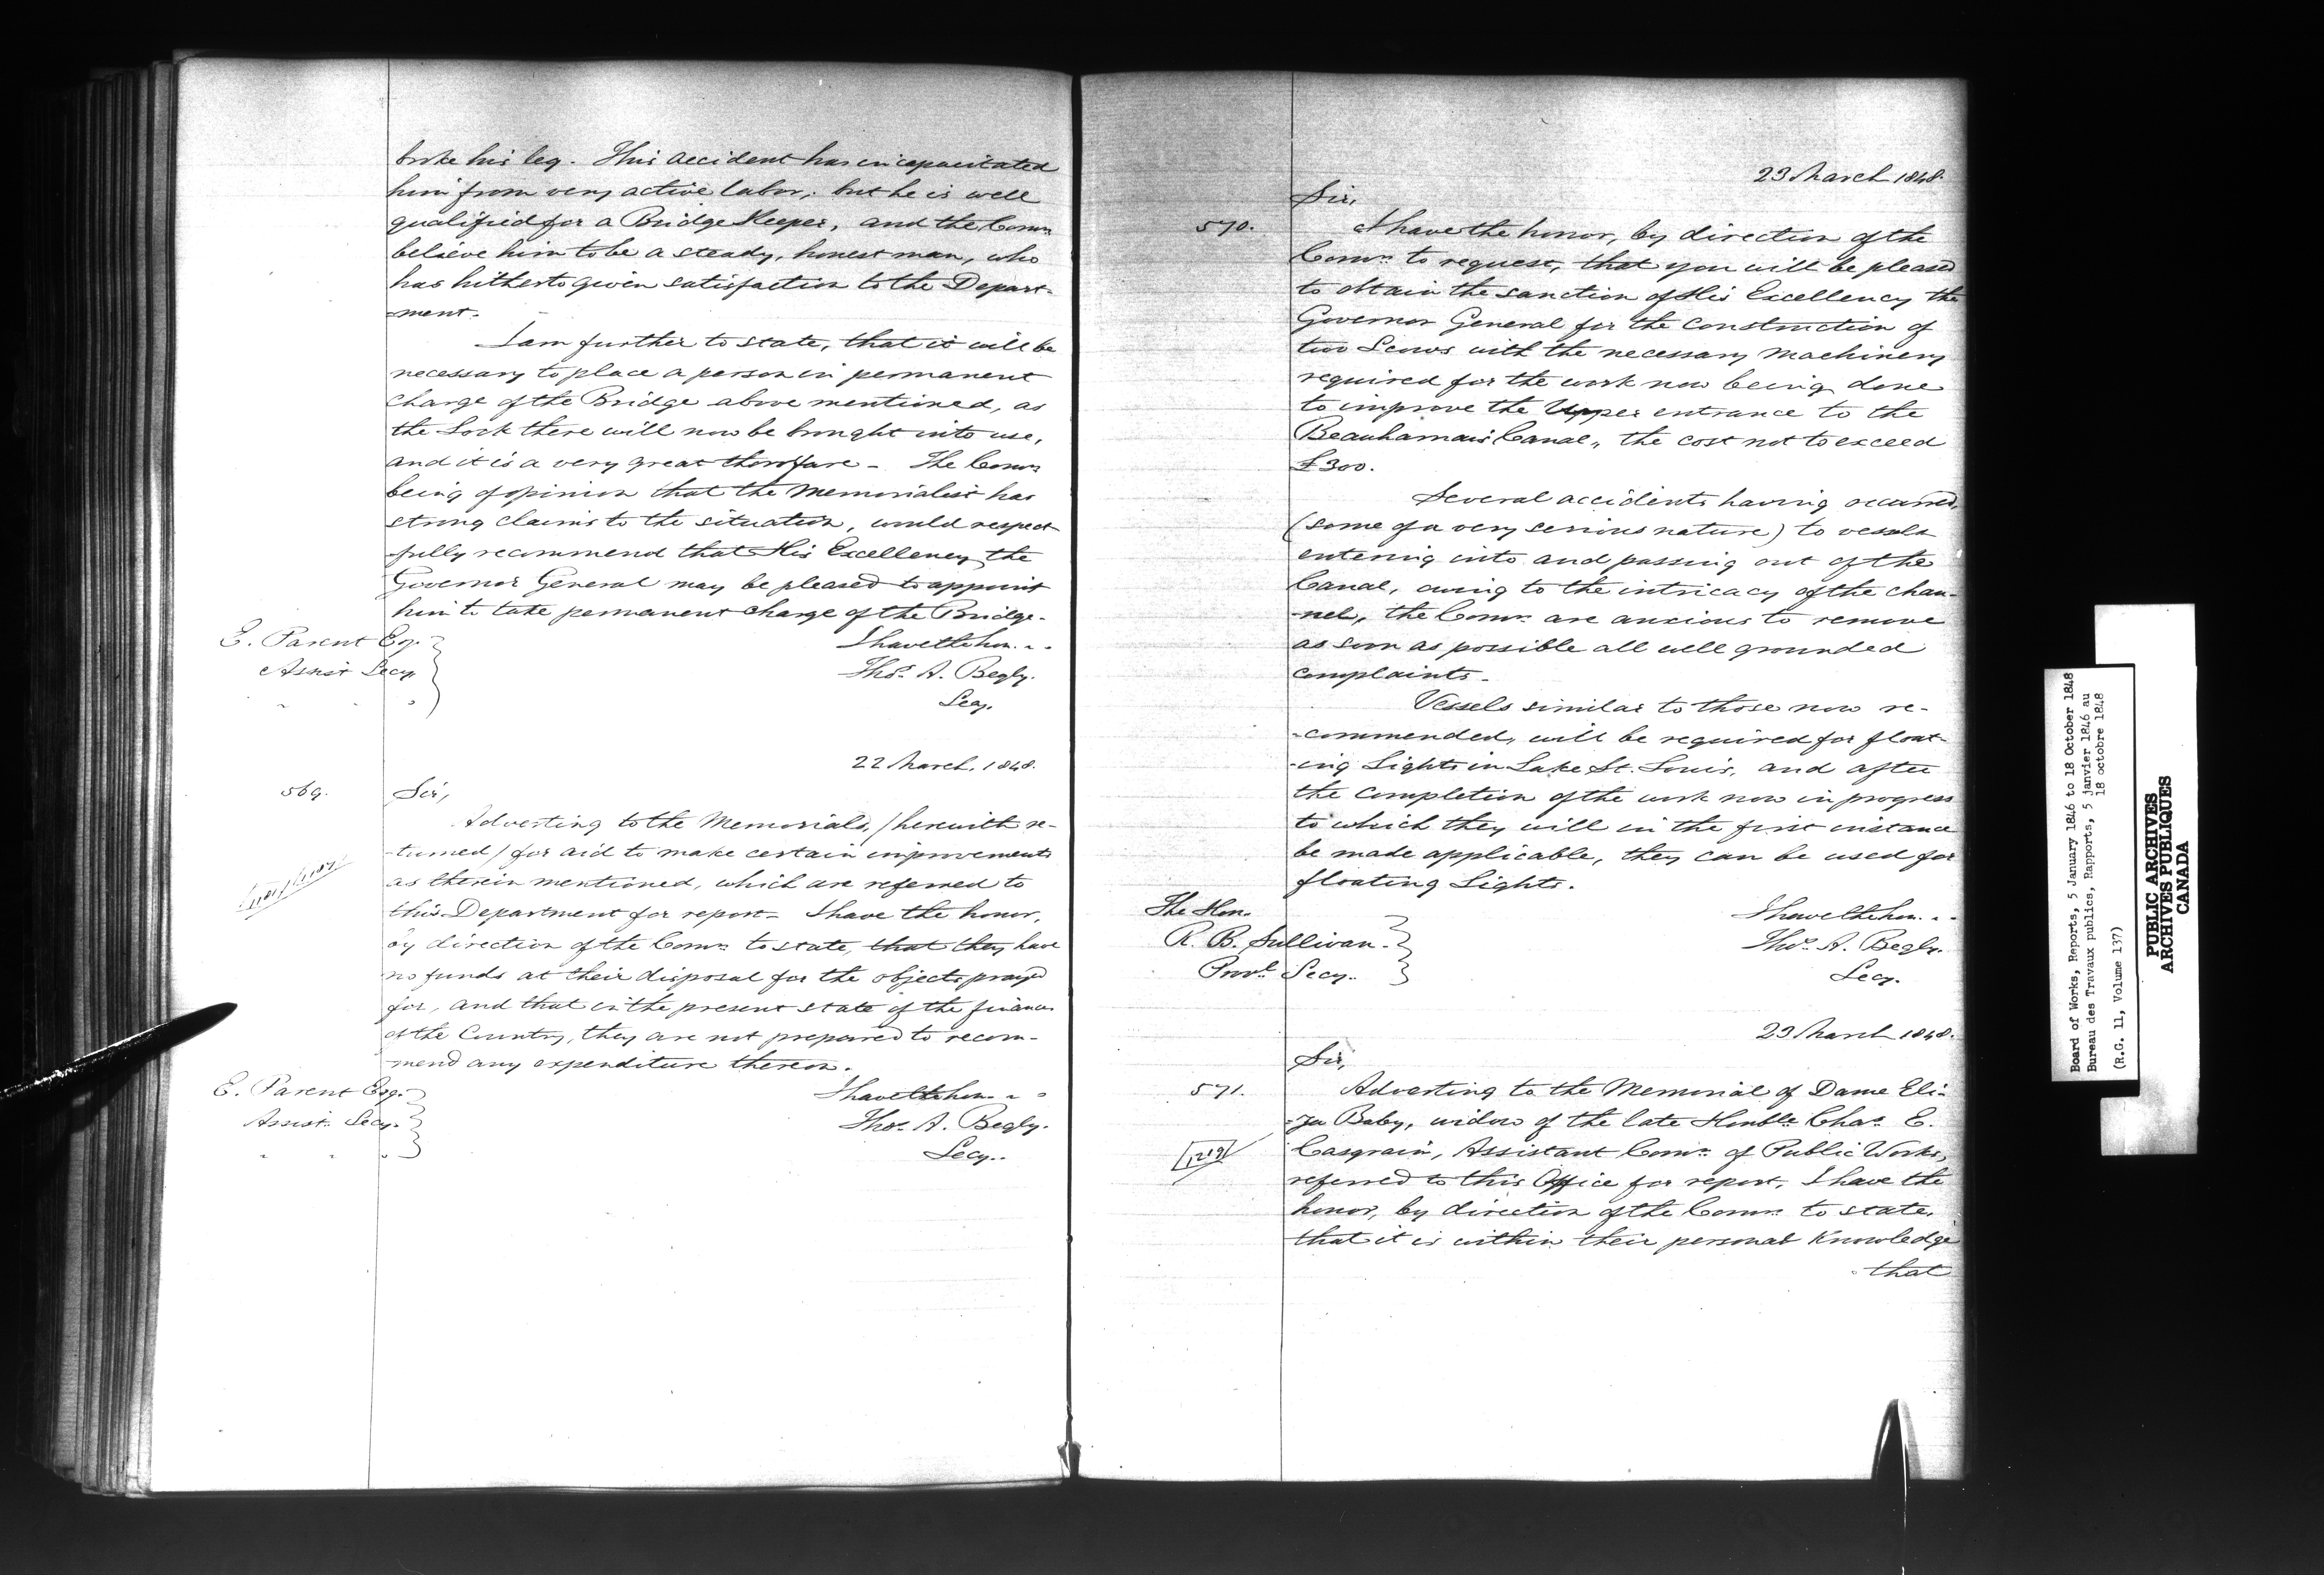 broke his leg. This accident has incapacitated
him from very active labor; but he is well
qualified for a Bridge Keeper, and the Comrs
believe him to be a steady, honest man, who
has hitherto given satisfaction to the Depart-
-ment.
I am further to state, that it will be
necessary to place a person in permanent
charge of the Bridge above mentioned, as
the Lock there will now be brought into use,
and it is a very great thorofare - The Comrs
being of opinion that the Memorialist has
strong claims to the situation, would respect
-fully recommend that His Excellency the
Governor General may be pleased to appoint
him to take permanent charge of the Bridge.
E. Parent Esq.
Assist Secy.
I have the hon. - -
Thos. A. Begly.
Secy.
22 March, 1848.
569.
Sir,
Adverting to the Memorials, / herewith re-
-turned / for aid to make certain improvements
as therein mentioned, which are referred to
this Department for report - I have the honor,
by direction of the Comrs to state, that they have
no funds at their disposal for the objects prayed
for, and that in the present state of the finances
of the Country, they are not prepared to recom-
-mend any expenditure thereon.
E. Parent Esq.
Assist. Secy.
I have the hon. - -
Thos. A. Begly.
Secy.
23 March 1848.
Sir,
570.
I have the honor, by direction of the
Comrs. to request, that you will be pleased
to obtain the sanction of His Excellency the
Governor General for the construction of
two Scows with the necessary machinery
required for the work now being done
to improve the Upper entrance to the
Beauharnais Canal, the cost not to exceed
£300.
Several accidents having occurred,
(some of a very serious nature) to vessels
entering into and passing out of the
Canal, owing to the intricacy of the chan-
-nel, the Comrs. are anxious to remove
as soon as possible all well grounded
complaints -
Vessels similar to those now re-
-commended, will be required for float-
-ing Lights in Lake St. Louis, and after
the completion of the work now in progress
to which they will in the first instance
be made applicable, they can be used for
floating Lights.
The Hon.
R. B. Sullivan.
Provl. Secy.
I have the hon. - -
Thos. A. Begly.
Secy.
23 March 1848.
Sir,
571.
Adverting to the Memorial of Dame Eli-
-za Baby, widow of the late Honble Chas. E.
1219
Casgrain, Assistant Comr. of Public Works,
referred to this Office for report, I have the
honor, by direction of the Comrs. to state,
that it is within their personal Knowledge
that
Board of Works, Reports, 5 January 1846 to 18 October 1848
Bureau des Travaux publics, Rapports, 5 janvier 1846 au
18 octobre 1848
(R.G. 11, Volume 137)
PUBLIC ARCHIVES
ARCHIVES PUBLIQUES
CANADA